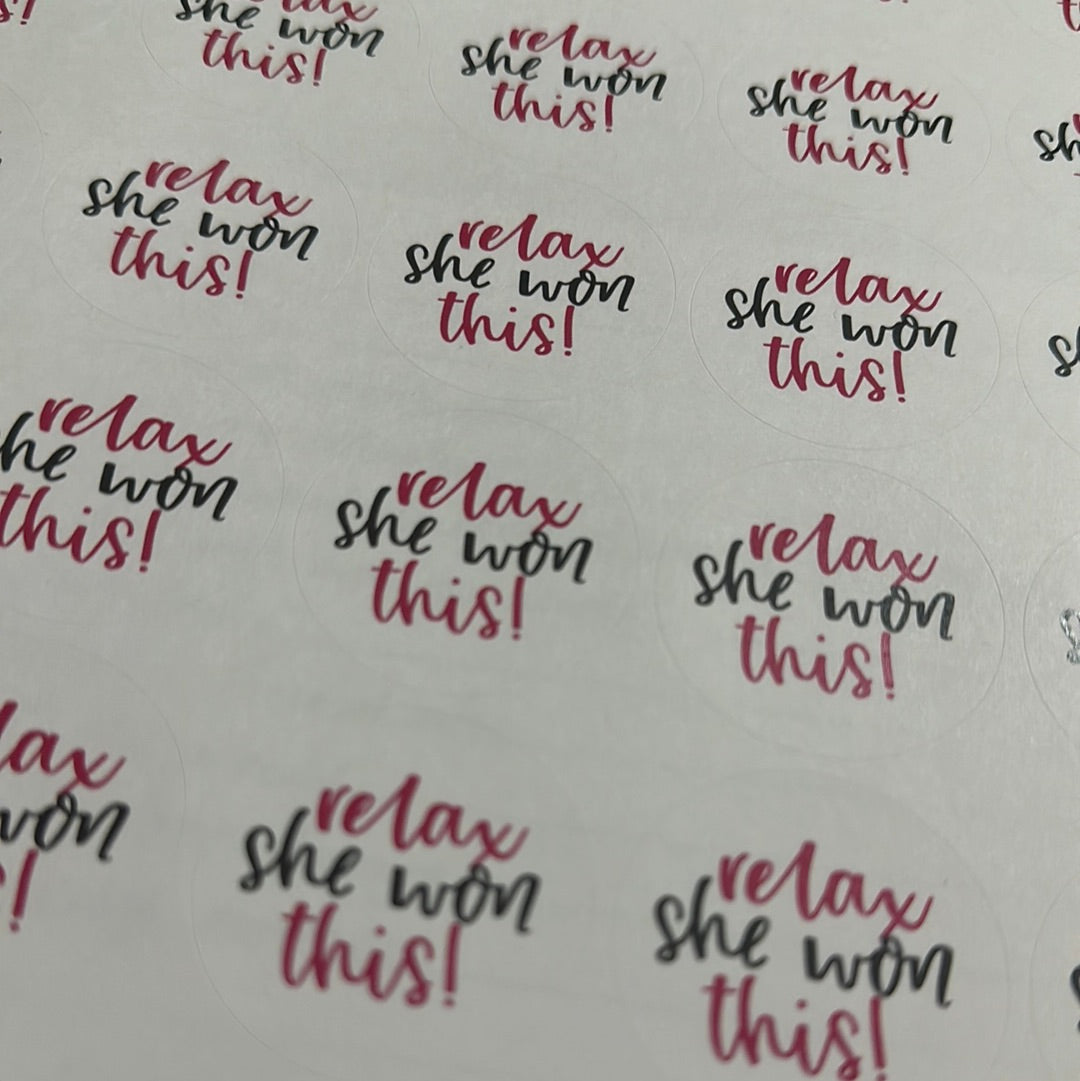 she won
this!
relax
she won
this!
relax
she won
this!
relax
she won
this!
relax
she won
this!
relax
she won
this!
relax
she won
this!
relax
she won
this!
relax
she won
this!
relax
she won
this!
relax
she won
this!